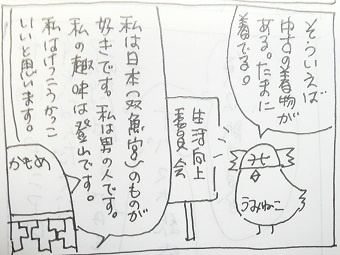 そういえば
中古の着物が
ある。たまに
着でる。
生活向上
委員会
うみねこ
私は日本(双魚宮)のものが
好きです。私は男の人です。
私の趣味は登山です。
私はけっこうかっこ
いいと思います。
かもめ